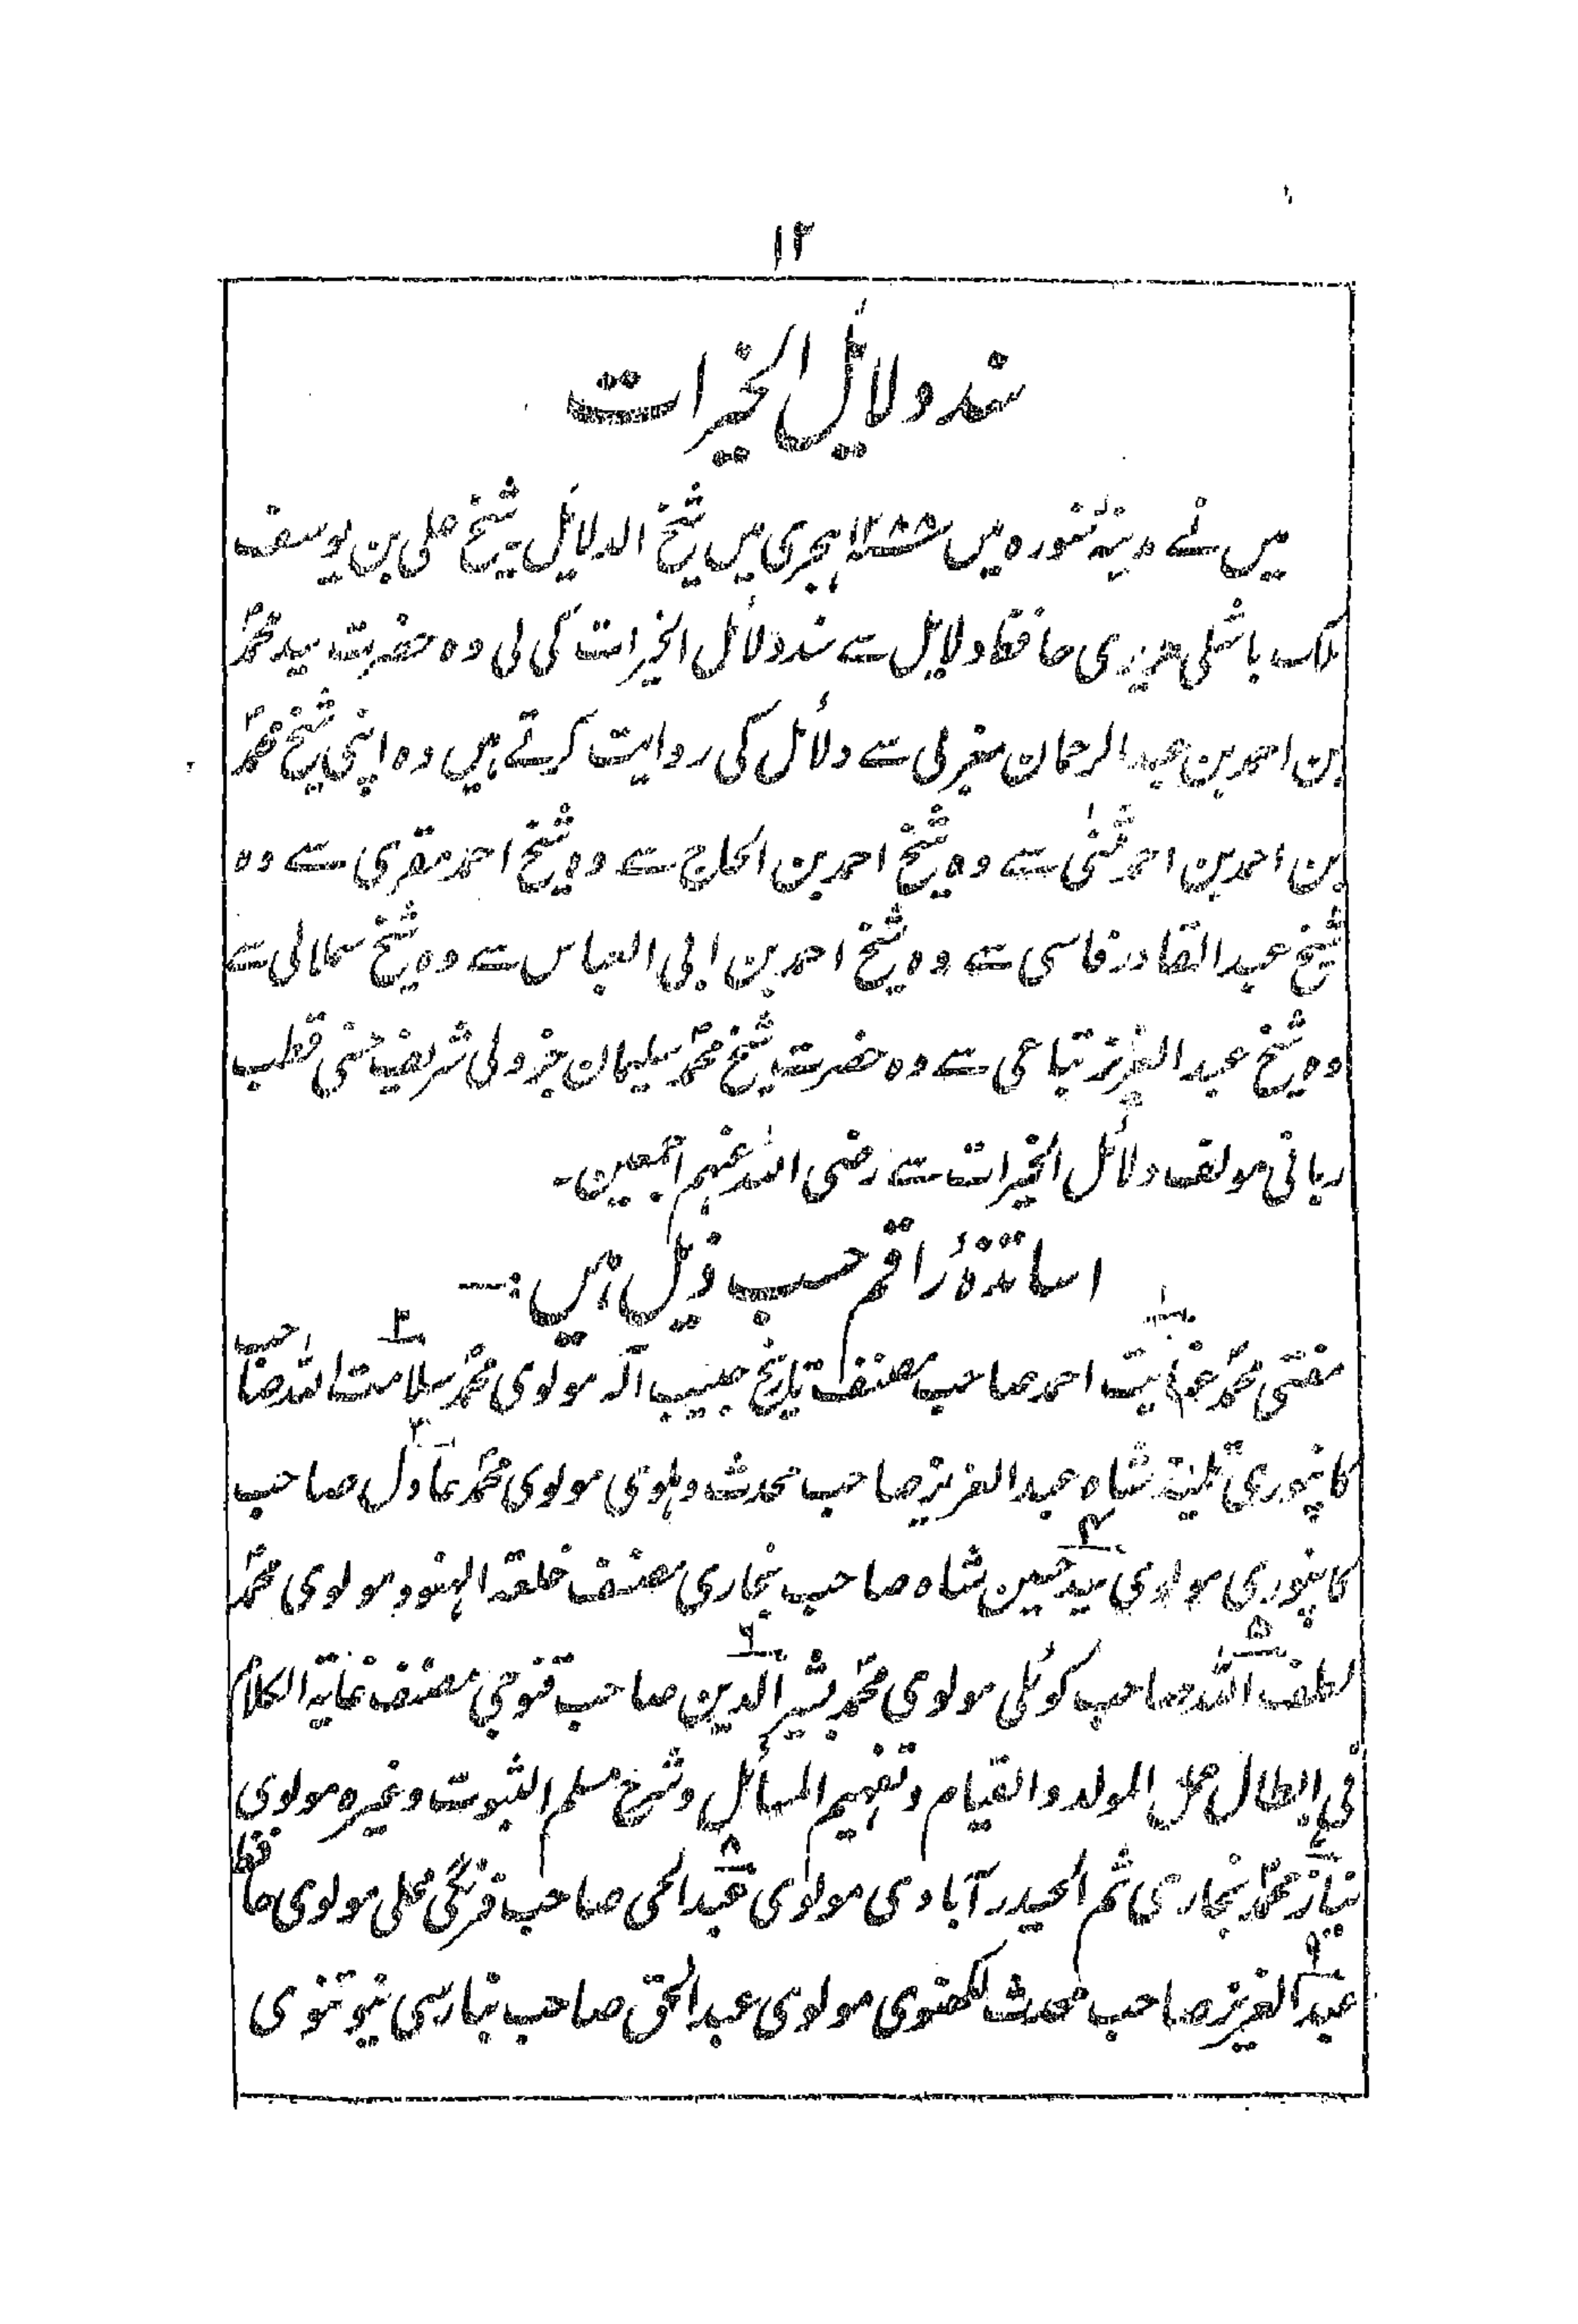 ۱۲
سند دلائل الخیرات
میں نے مدینہ منورہ میں ۱۲۸۸ ہجری میں شیخ الدلائل شیخ علی بن یوسف
ملک باشلی حریری حافظ دلایل سے سند دلائل الخیرات کی لی وہ حضرت سید محمدؐ
بن احمد بن عبدالرحمان مغربی سے دلائل کی روایت کرتے ہیں وہ اپنی شیخ محمدؐ
بن احمد بن احمد مثنیٰ سے وہ شیخ احمد بن الحاج سے وہ شیخ احمد مقری سے وہ
شیخ عبدالقادر فاسی سے وہ شیخ احمد بن ابی العباس سے وہ شیخ سملالی سے
وہ شیخ عبدالعزیز تباعی سے وہ حضرت شیخ محمدؐ سلیمان جزولی شریف حسنی قطب
ربانی مولف دلائل الخیرات سے رضی اللہ عنہم اجمعین۔
اساتذۂ راقم حسب ذیل ہیں :—
مفتی محمدؐ عنایت احمد صاحب مصنف تاریخ حبیب آلہ مولوی محمدؐ سلامت اللہ صاحب ۲
کانپوری تلمیذ شاہ عبدالعزیز صاحب محدث دہلوی مولوی محمدؐ عادل صاحب ۳
کانپوری مولوی سید حسین شاہ صاحب بخاری مصنف خلعۃ الہنود مولوی محمدؐ ۴
لطف اللہ صاحب کوئلی مولوی محمدؐ بشیر الدین صاحب قنوجی مصنف غایۃ الکلام ۵ ۶
فی ابطال عمل المولد والقیام وتفہیم المسائل وشرح مسلم الثبوت وغیرہ مولوی
نیاز محمدؐ بخاری ثم الحیدرآبادی مولوی عبدالحی صاحب فرنگی محلی مولوی حافظ ۷ ۸
عبدالعزیز صاحب محدث لکھنوی مولوی عبدالحق صاحب بنارسی نیوتنوی ۹